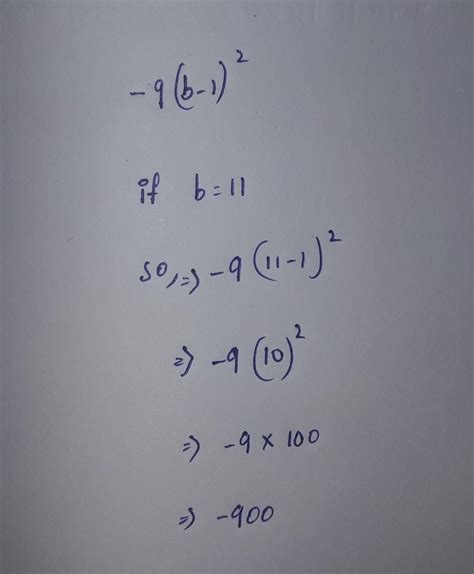 -9(b-1)²
if b=11
so, => -9(11-1)²
=> -9(10)²
=> -9 × 100
=> -900